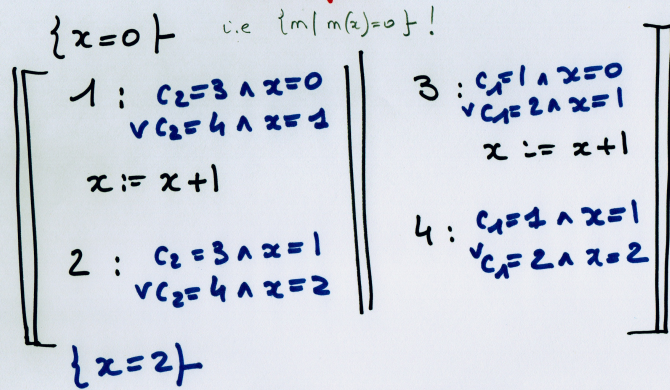 {x=0} i.e {m | m(x)=0} !
1 : C2=3 ∧ x=0
∨ C2=4 ∧ x=1
x := x+1
2 : C2=3 ∧ x=1
∨ C2=4 ∧ x=2
3 : C1=1 ∧ x=0
∨ C1=2 ∧ x=1
x := x+1
4 : C1=1 ∧ x=1
∨ C1=2 ∧ x=2
{x=2}